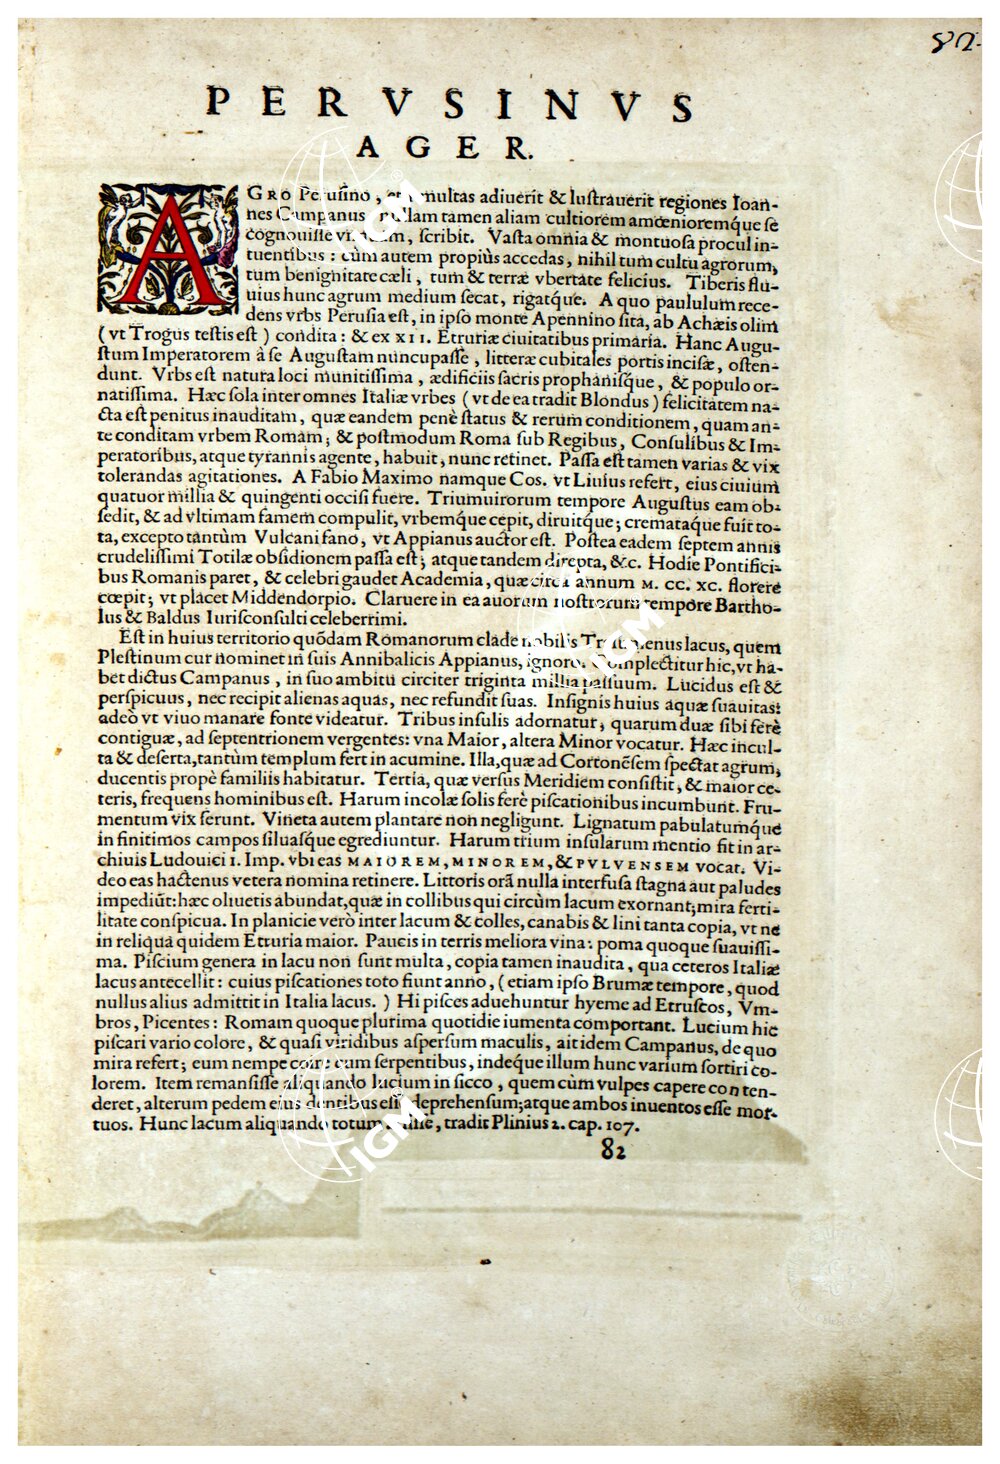 82.
PERVSINVS
AGER.
AGRO Perusino, multas adiuerit & lustrauerit regiones Ioan-
nes Campanus nullam tamen aliam cultiorem amœnioremque se
cognouisse scribit. Vasta omnia & montuosa procul in-
tuentibus: cùm autem propiùs accedas, nihil tum cultu agrorum,
tum benignitate cæli, tum & terræ vbertate felicius. Tiberis flu-
uius hunc agrum medium secat, rigatque. A quo paululum rece-
dens vrbs Perusia est, in ipso monte Apennino sita, ab Achæis olim
(vt Trogus testis est) condita: & ex XII. Etruriæ ciuitatibus primaria. Hanc Augu-
stum Imperatorem à se Augustam nuncupasse, litteræ cubitales portis incisæ, osten-
dunt. Vrbs est natura loci munitissima, ædificiis sacris prophanisque, & populo or-
natissima. Hæc sola inter omnes Italiæ vrbes (vt de ea tradit Blondus) felicitatem na-
cta est penitus inauditam, quæ eandem penè status & rerum conditionem, quam an-
te conditam vrbem Romam; & postmodum Roma sub Regibus, Consulibus & Im-
peratoribus, atque tyrannis agente, habuit, nunc retinet. Passa est tamen varias & vix
tolerandas agitationes. A Fabio Maximo namque Cos. vt Liuius refert, eius ciuium
quatuor millia & quingenti occisi fuere. Triumuirorum tempore Augustus eam ob-
sedit, & ad vltimam famem compulit, vrbemque cepit, diruitque; cremataque fuit to-
ta, excepto tantùm Vulcani fano, vt Appianus auctor est. Postea eadem septem annis
crudelissimi Totilæ obsidionem passa est; atque tandem direpta, &c. Hodie Pontifici-
bus Romanis paret, & celebri gaudet Academia, quæ circa annum M. CC. XC. florere
cœpit; vt placet Middendorpio. Claruere in ea auorum nostrorum tempore Bartho-
lus & Baldus Iurisconsulti celeberrimi.
Est in huius territorio quondam Romanorum clade nobilis Trasimenus lacus, quem
Plestinum cur nominet in suis Annibalicis Appianus, ignoro. Complectitur hic, vt ha-
bet dictus Campanus, in suo ambitu circiter triginta millia passuum. Lucidus est &
perspicuus, nec recipit alienas aquas, nec refundit suas. Insignis huius aquæ suauitas:
adeò vt viuo manare fonte videatur. Tribus insulis adornatur, quarum duæ sibi ferè
contiguæ, ad septentrionem vergentes: vna Maior, altera Minor vocatur. Hæc incul-
ta & deserta, tantùm templum fert in acumine. Illa, quæ ad Cortonẽsem spectat agrum,
ducentis propè familiis habitatur. Tertia, quæ versus Meridiem consistit, & maior ce-
teris, frequens hominibus est. Harum incolæ solis ferè piscationibus incumbunt. Fru-
mentum vix ferunt. Vineta autem plantare non negligunt. Lignatum pabulatumque
in finitimos campos siluasque egrediuntur. Harum trium insularum mentio fit in ar-
chiuis Ludouici I. Imp. vbi eas MAIOREM, MINOREM, & PVLVENSEM vocat. Vi-
deo eas hactenus vetera nomina retinere. Littoris orã nulla interfusa stagna aut paludes
impediũt: hæc oliuetis abundat, quæ in collibus qui circùm lacum exornant; mira ferti-
litate conspicua. In planicie verò inter lacum & colles, canabis & lini tanta copia, vt ne
in reliqua quidem Etruria maior. Paucis in terris meliora vina: poma quoque suauissi-
ma. Piscium genera in lacu non sunt multa, copia tamen inaudita, qua ceteros Italiæ
lacus antecellit: cuius piscationes toto fiunt anno, (etiam ipso Brumæ tempore, quod
nullus alius admittit in Italia lacus.) Hi pisces aduehuntur hyeme ad Etruscos, Vm-
bros, Picentes: Romam quoque plurima quotidie iumenta comportant. Lucium hic
piscari vario colore, & quasi viridibus aspersum maculis, ait idem Campanus, de quo
mira refert; eum nempe coire cum serpentibus, indeque illum hunc varium sortiri co-
lorem. Item remansisse aliquando lucium in sicco, quem cùm vulpes capere conten-
deret, alterum pedem eius dentibus esse deprehensum; atque ambos inuentos esse mor-
tuos. Hunc lacum aliquando totum tradit Plinius 2. cap. 107.
82
IGM
IGM
IGM